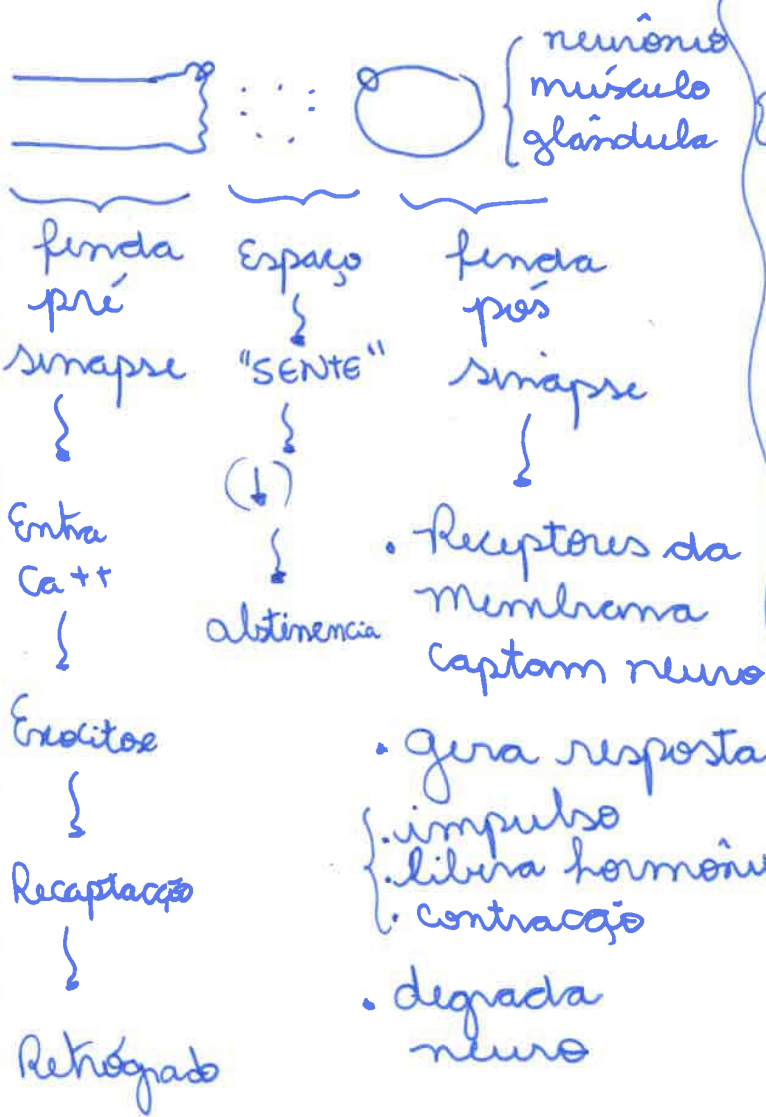 neurônio
músculo
glândula
fenda
pré
sinapse
Entra
Ca++
Exocitose
Recaptação
Retrógrado
Espaço
"SENTE"
(↓)
abstinencia
fenda
pós
sinapse
. Receptores da
membrana
captam neuro
. Gera resposta
. impulso
. libera hormôni
. contração
. degrada
neuro